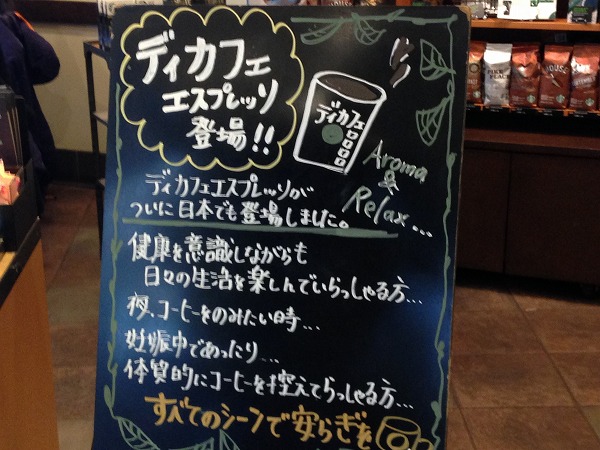 ディカフェ
エスプレッソ
登場!!
ディカフェ
Aroma
&
Relax...
ディカフェエスプレッソが
ついに日本でも登場しました。
健康を意識しながらも
日々の生活を楽しんでいらっしゃる方...
夜、コーヒーをのみたい時...
妊娠中であったり...
体質的にコーヒーを控えてらっしゃる方...
すべてのシーンで安らぎを
PIKE PLACE
HOUSE